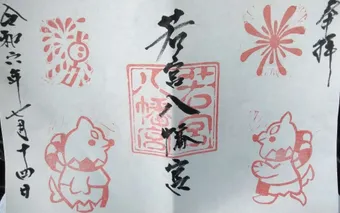 奉拝
若宮八幡宮
若宮
八幡宮
令和六年七月十四日